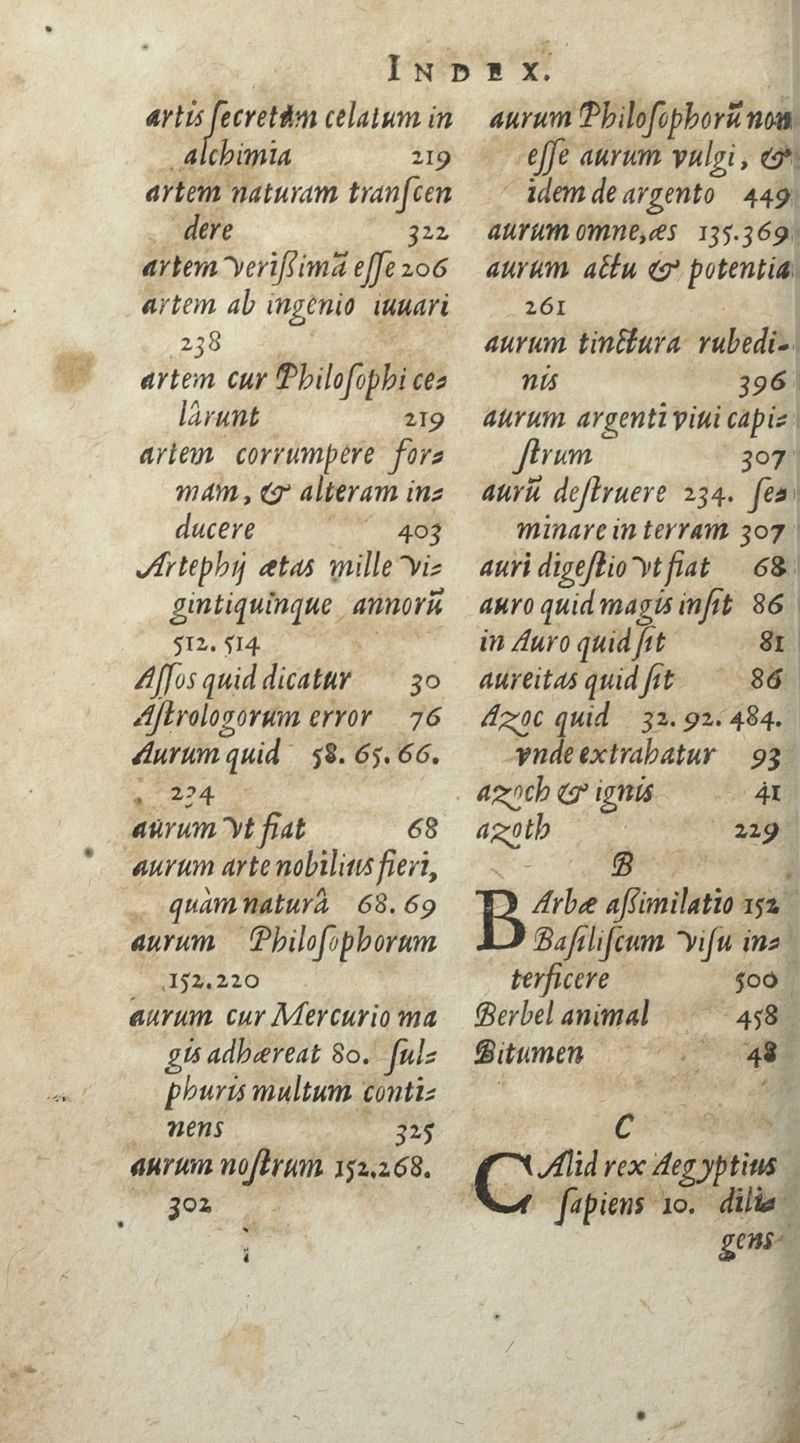 INDEX.
artis ſecretũm celatum in
alchimia 219
artem naturam tranſcen
dere 322
artem veriſſimã eſſe 206
artem ab ingenio iuuari
238
artem cur Philoſophi ce⸗
lârunt 219
artem corrumpere for⸗
mam, & alteram in⸗
ducere 403
Artephij ætas mille vi⸗
gintiquinque annorũ
512. 514
Aſſos quid dicatur 30
Aſtrologorum error 76
Aurum quid 58. 65. 66.
234
aurum vt fiat 68
aurum arte nobilius fieri,
quàm naturâ 68. 69
aurum Philoſophorum
152.220
aurum cur Mercurio ma
gis adhæreat 80. ſul⸗
phuris multum conti⸗
nens 325
aurum noſtrum 152.268.
302
aurum Philoſophorũ non
eſſe aurum vulgi, &
idem de argento 449
aurum omne, æs 135.369
aurum actu & potentia
261
aurum tinctura rubedi-
nis 396
aurum argenti viui capi⸗
ſtrum 307
aurũ deſtruere 234. ſe⸗
minare in terram 307
auri digeſtio vt fiat 68
auro quid magis inſit 86
in Auro quid ſit 81
aureitas quid ſit 86
Azoc quid 32. 92. 484.
vnde extrahatur 93
azoch & ignis 41
azoth 229
B
BArbæ aſſimilatio 152
Baſiliſcum viſu in⸗
terficere 500
Berbel animal 458
Bitumen 48
C
CAlid rex Aegyptius
ſapiens 10. dili⸗
gens